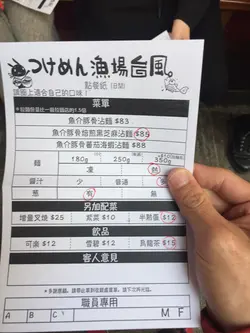 つけめん漁場台風。
點餐紙 (日間)
請圈上適合自己的口味！
菜單
魚介豚骨沾麵 $83
魚介豚骨焙煎黑芝麻沾麵 $85
魚介豚骨蕃茄海蝦沾麵 $88
麵 180g 250g 350g
凍 熱
醬汁 少 普通
蔥 有 走
另加配菜
增量叉燒 $25 紫菜 $10 半熟蛋 $12
飲品
可樂 $12 雪碧 $12 烏龍茶 $15
客人意見
職員專用
A B C M F